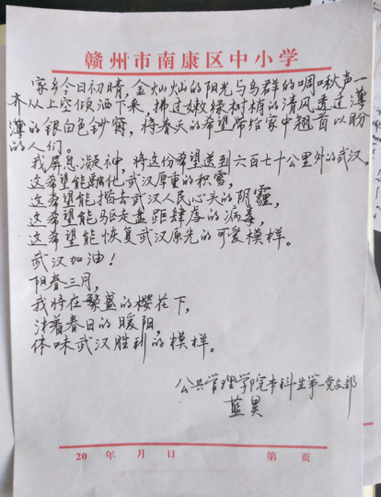 赣州市南康区中小学
家乡今日初晴,金灿灿的阳光与鸟群的啁啾声一
齐从上空倾洒下来,拂过嫩绿树梢的清风透过薄
薄的银白色纱帘,将春天的希望带给家中翘首以盼
的人们。
我屏息凝神,将这份希望送到六百七十公里外的武汉。
这希望能融化武汉厚重的积雪,
这希望能揩去武汉人民心头的阴霾,
这希望能驱走盘踞肆虐的病毒,
这希望能恢复武汉原先的可爱模样。
武汉加油!
阳春三月,
我将在繁盛的樱花下,
沐着春日的暖阳,
体味武汉胜利的模样。
公共管理学院本科生第一党支部
蓝昊
20 年 月 日 第 页